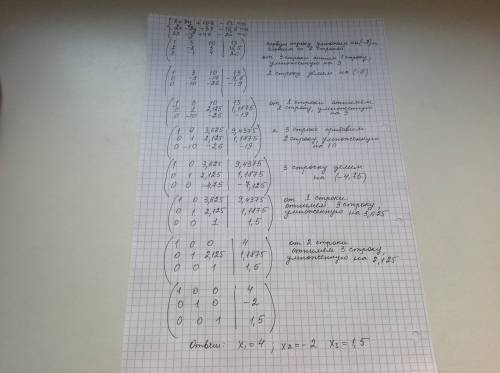 1 3 10 13
первую строку умножаем на (-2) и
от 3 строки отнимем 1 строку,
умноженную на 3
1 3 10 13
0 -10 -26 -19
2 строку делим на (-8)
1 3 10 13
0 1 2,125 1,1875
0 -10 -26 -19
от 1 строки отнимаем
2 строку, умноженную
на 3
1 0 3,625 9,4375
0 1 2,125 1,1875
0 -10 -26 -19
к 3 строке прибавим
2 строку умноженную
на 10
1 0 3,625 9,4375
0 1 2,125 1,1875
0 0 -4,75 -7,125
3 строку делим
на (-4,75)
1 0 3,625 9,4375
0 1 2,125 1,1875
0 0 1 1,5
от 1 строки
отнимем 3 строку,
умноженную на 3,625
1 0 0 4
0 1 2,125 1,1875
0 0 1 1,5
от 2 строки
отнимем 3 строку,
умноженную на 2,125
1 0 0 4
0 1 0 -2
0 0 1 1,5
Ответ: x₁=4; x₂=-2 x₃=1,5